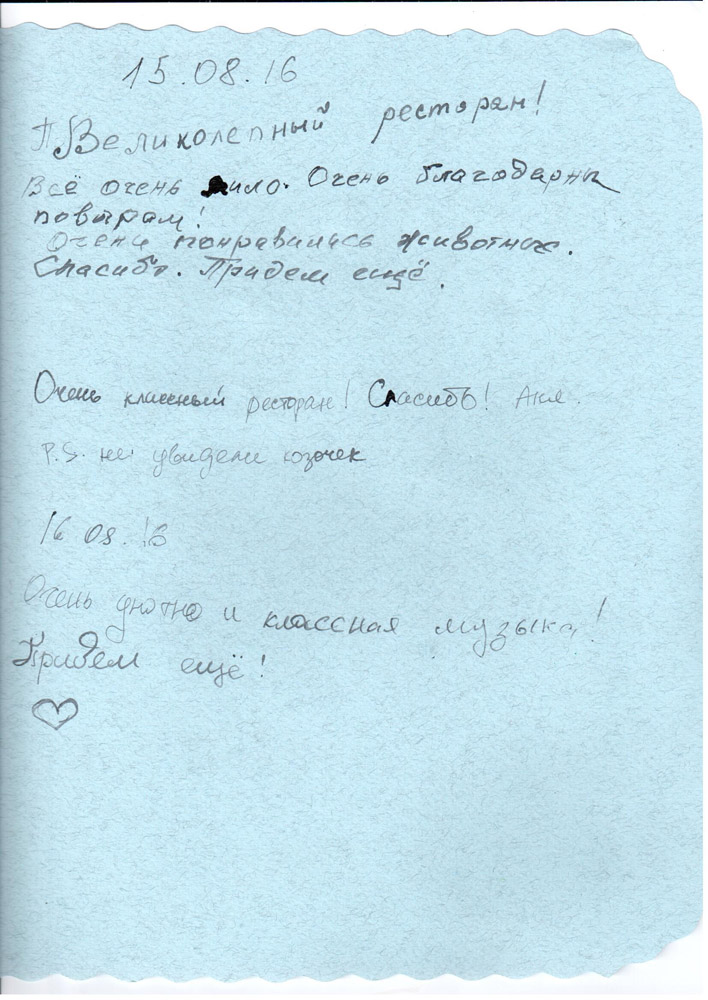 15.08.16
Великолепный ресторан!
Всё очень мило. Очень благодарны
поварам!
Очень понравились животные.
Спасибо. Придем ещё.
Очень классный ресторан! Спасибо! Аня.
P.S. не увидели козочек
16 08.16
Очень уютно и классная музыка!
Придем ещё!